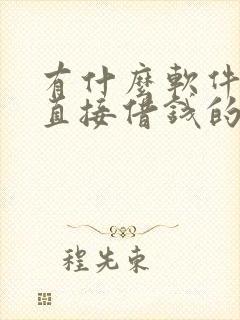 有什麼軟件
直接借錢的
程先東